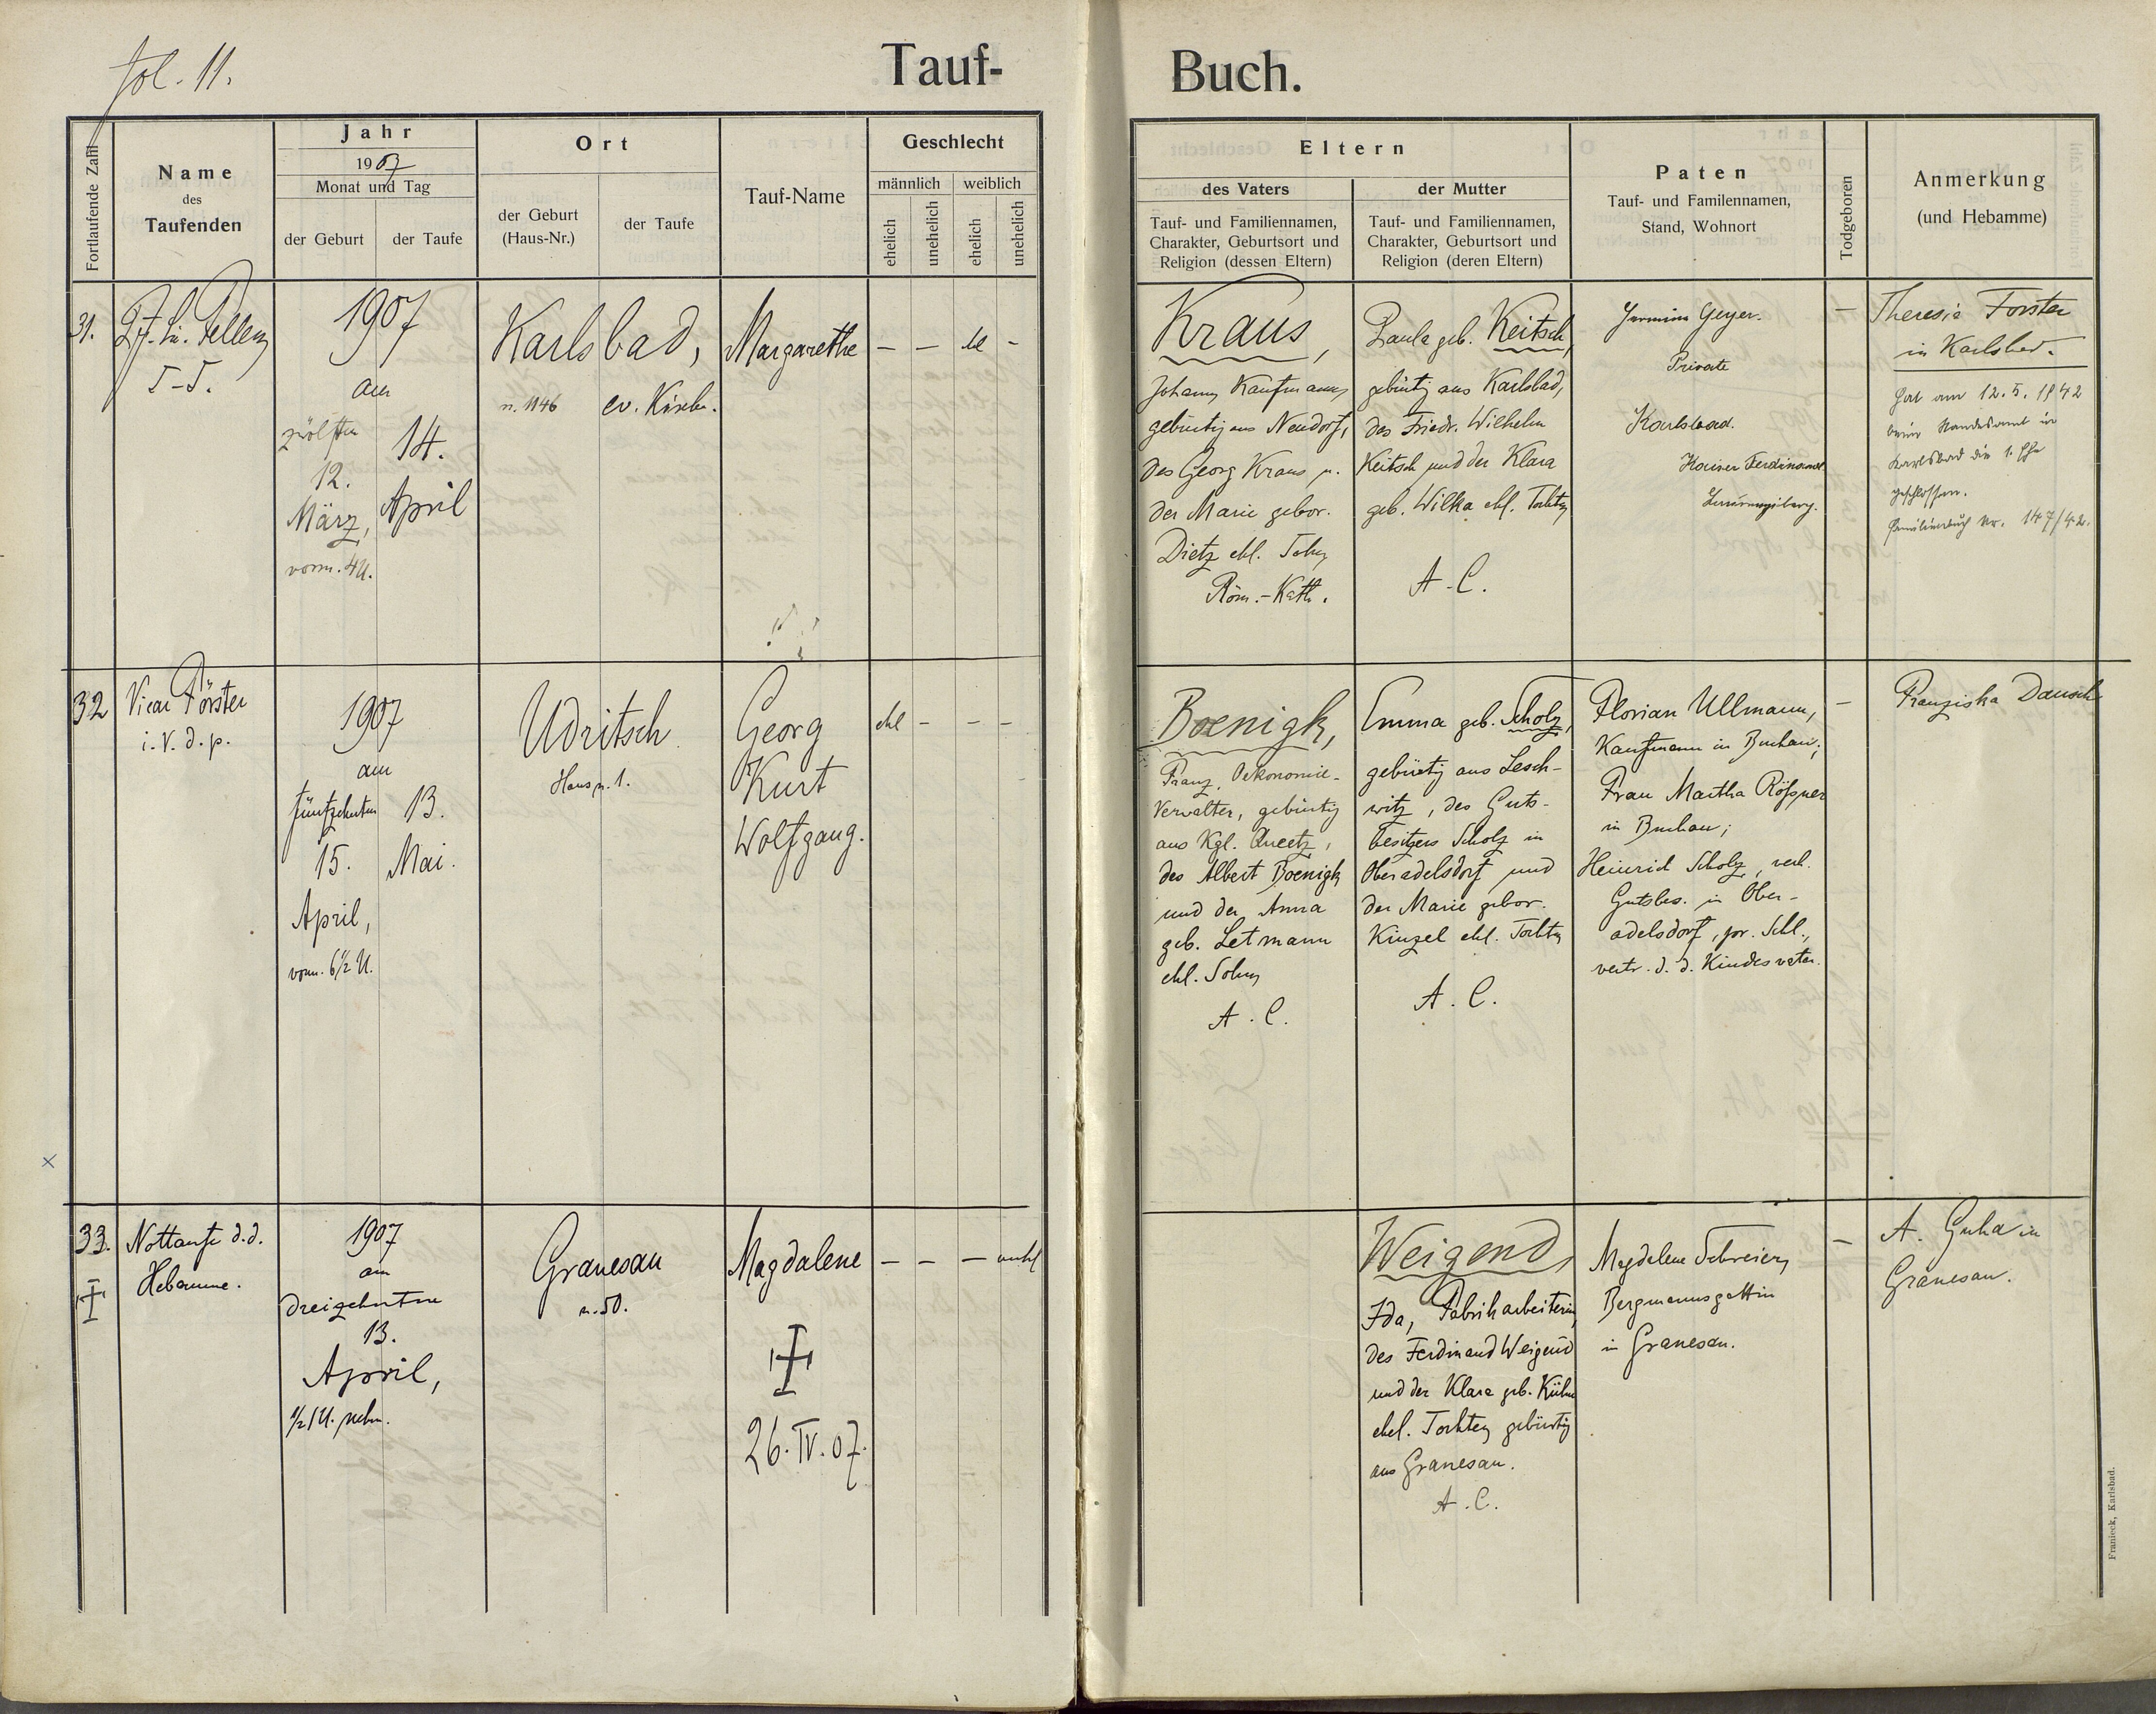 fol. 11.
Tauf-
Buch.
Fortlaufende Zahl
Name
des
Taufenden
Jahr
1907
Monat und Tag
der Geburt
der Taufe
Ort
der Geburt
(Haus-Nr.)
der Taufe
Tauf-Name
Geschlecht
männlich
weiblich
ehelich
unehelich
ehelich
unehelich
Eltern
des Vaters
Tauf- und Familiennamen,
Charakter, Geburtsort und
Religion (dessen Eltern)
der Mutter
Tauf- und Familiennamen,
Charakter, Geburtsort und
Religion (deren Eltern)
Paten
Tauf- und Familennamen,
Stand, Wohnort
Todgeboren
Anmerkung
(und Hebamme)
31.
1907
am
zwölften
12.
März,
vorm. 4 U.
14.
April
Karlsbad,
n. 1146
ev. Kirche.
Margarethe
— — —
Kraus,
Johann Kaufmann,
gebürtig aus Neudorf,
des Georg Kraus u.
der Marie gebor.
Dietz ehl. Sohn
Röm.-Kath.
Paula geb. Keitsch,
gebürtig aus Karlsbad,
des Friedr. Wilhelm
Keitsch und der Klara
geb. Wilka ehl. Tochter
A. C.
Geyer.
Private
Karlsbad.
Kaiser Ferdinand
—
Theresia Forster
in Karlsbad.
Hat am 12. 5. 1942
beim Standesamt in
Karlsbad die 1. Ehe
geschlossen.
Familienbuch Nr. 147/42.
32
Vicar Förster
i. V. d. p.
1907
am
fünfzehnten
15.
April,
vorm. 6 1/2 U.
13.
Mai.
Udritsch
Haus n. 1.
Georg
Kurt
Wolfgang.
ehl — — —
Boenigk,
Franz, Oekonomie-
Verwalter, gebürtig
aus Kgl.
des Albert Boenigk
und der Anna
geb. Letmann
ehl. Sohn
A. C.
Emma geb. Scholz,
gebürtig aus Lesch-
witz, des Guts-
besitzers Scholz in
Oberadelsdorf und
der Marie gebor.
Kinzel ehl. Tochter
A. C.
Florian Ullmann,
Kaufmann in Buchau;
Frau Martha Rößner
in Buchau;
Heinrich Scholz,
Gutsbes. in Ober-
adelsdorf, pr. Schl.,
vertr. d. d. Kindesvater.
—
Franziska Dausch
33.
Nottaufe d. d.
Hebamme.
1907
am
dreizehnten
13.
April,
1/2 1 U. nchm.
Granesau
n. 50.
Magdalene
26. IV. 07.
— — — unehl
Weigend,
Ida, Fabrikarbeiterin,
des Ferdinand Weigend
und der Klara geb. Kühn
ehel. Tochter, gebürtig
aus Granesau.
A. C.
Magdalene Schreier,
Bergmannsgattin
in Granesau.
—
A. Guha in
Granesau.
Franieck, Karlsbad.